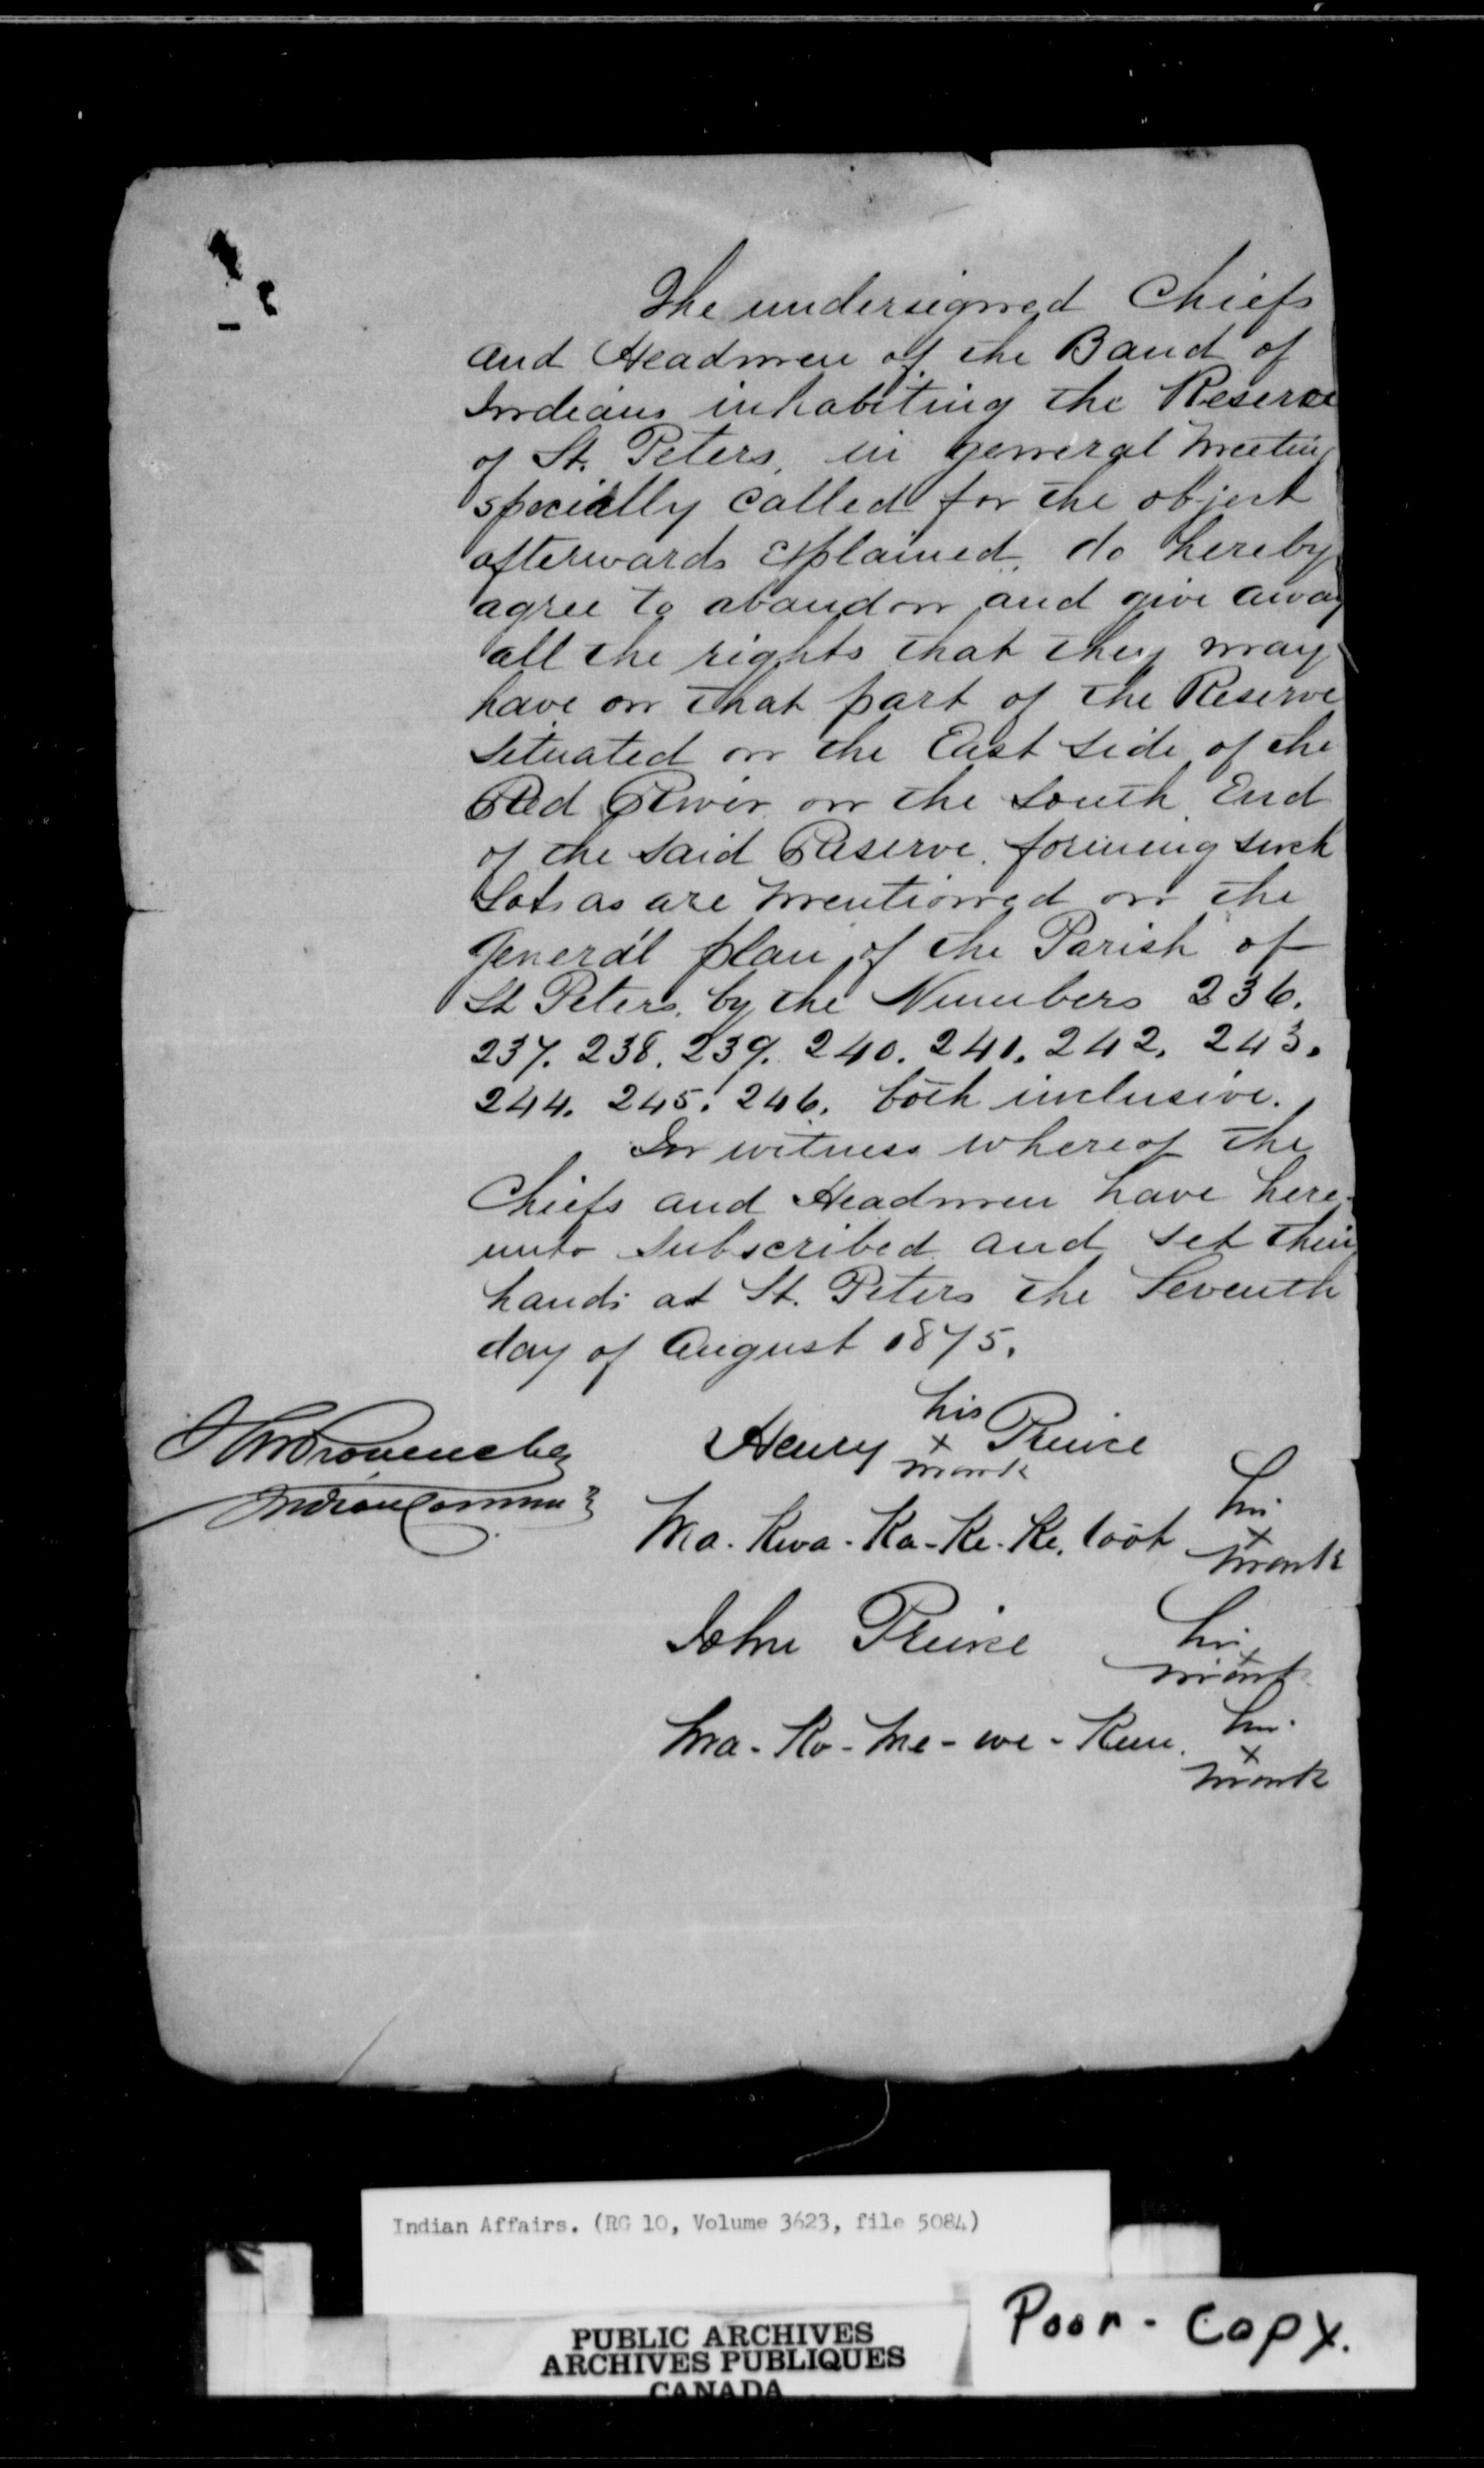 The undersigned Chiefs
and Headmen of the Band of
Indians inhabiting the Reserve
of St. Peters, in general meeting
specially called for the object
afterwards explained, do hereby
agree to abandon and give away
all the rights that they may
have on that part of the Reserve
situated on the East side of the
Red River on the South End
of the said Reserve, forming such
Lots as are mentioned on the
general plan of the Parish of
St Peters, by the Numbers 236.
237. 238. 239. 240. 241. 242. 243.
244. 245. 246. both inclusive.
In witness whereof the
Chiefs and Headmen have here-
unto subscribed and set their
hands at St. Peters the Seventh
day of August 1875.
his
Henry x Prince
mark
Provencher
Indian Commr
his
Ma-Kwa-Ka-Ke-Ke, toot x
mark
John Prince his
x
mark
Ma-Ko-Me-we-Kun. his
x
mark
Indian Affairs. (RG 10, Volume 3623, file 5084)
PUBLIC ARCHIVES
ARCHIVES PUBLIQUES
CANADA
Poor - Copy.